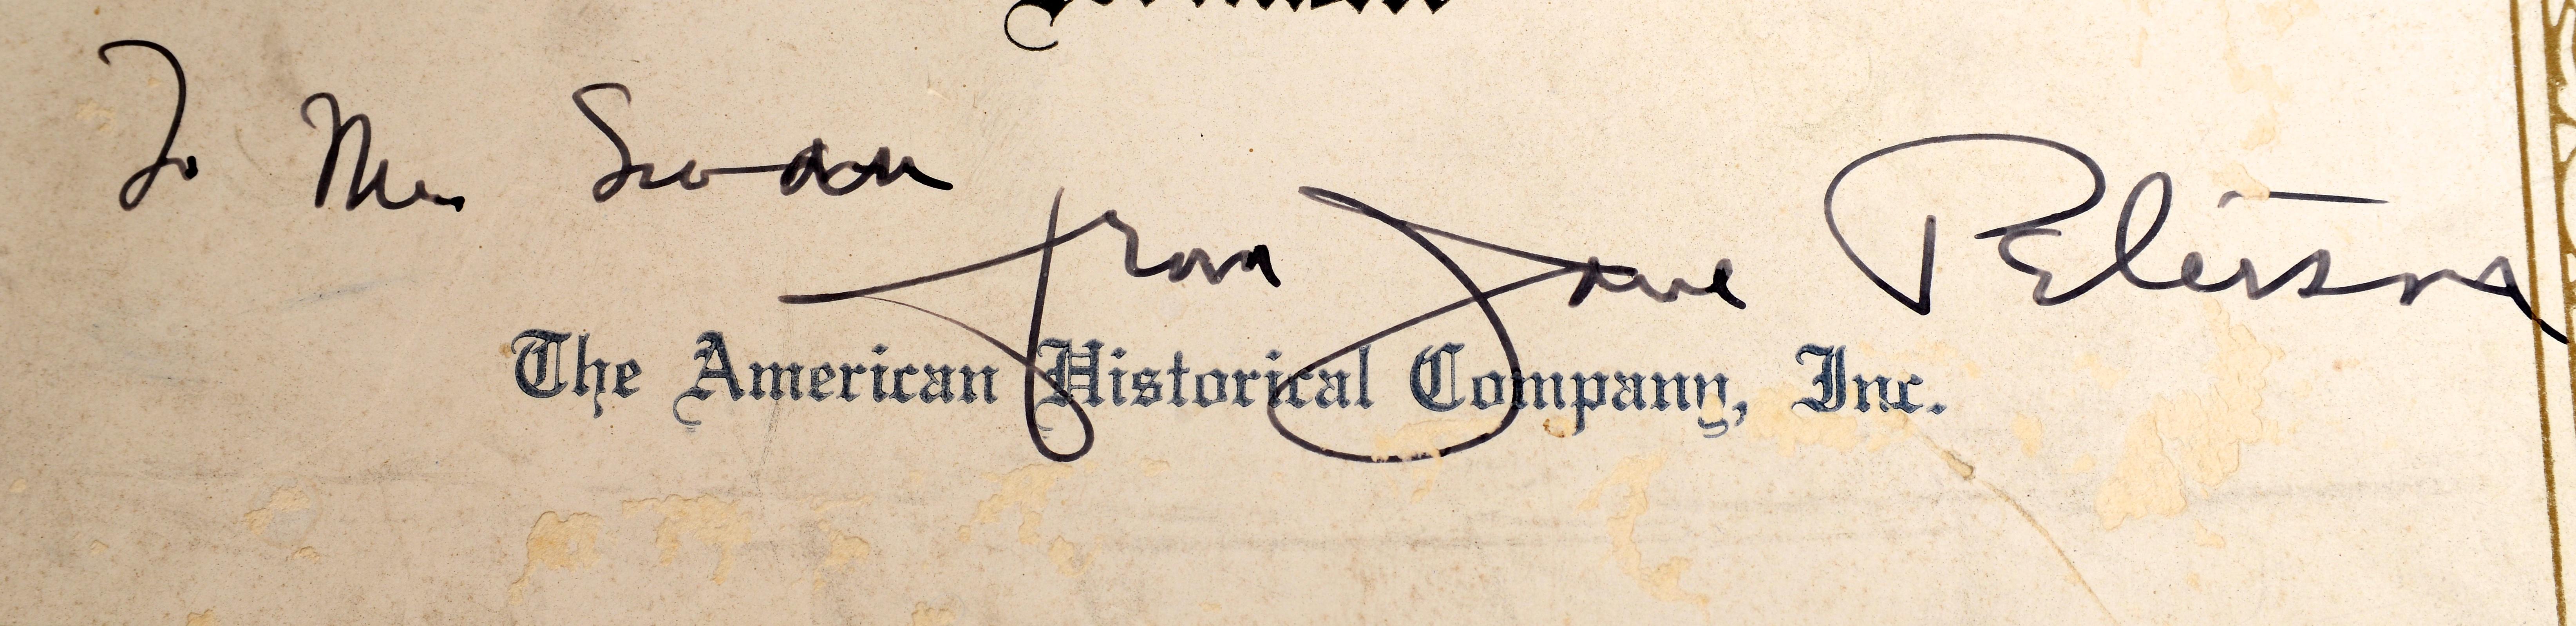 To Mr. Swan
from Jane Peterson
The American Historical Company, Inc.